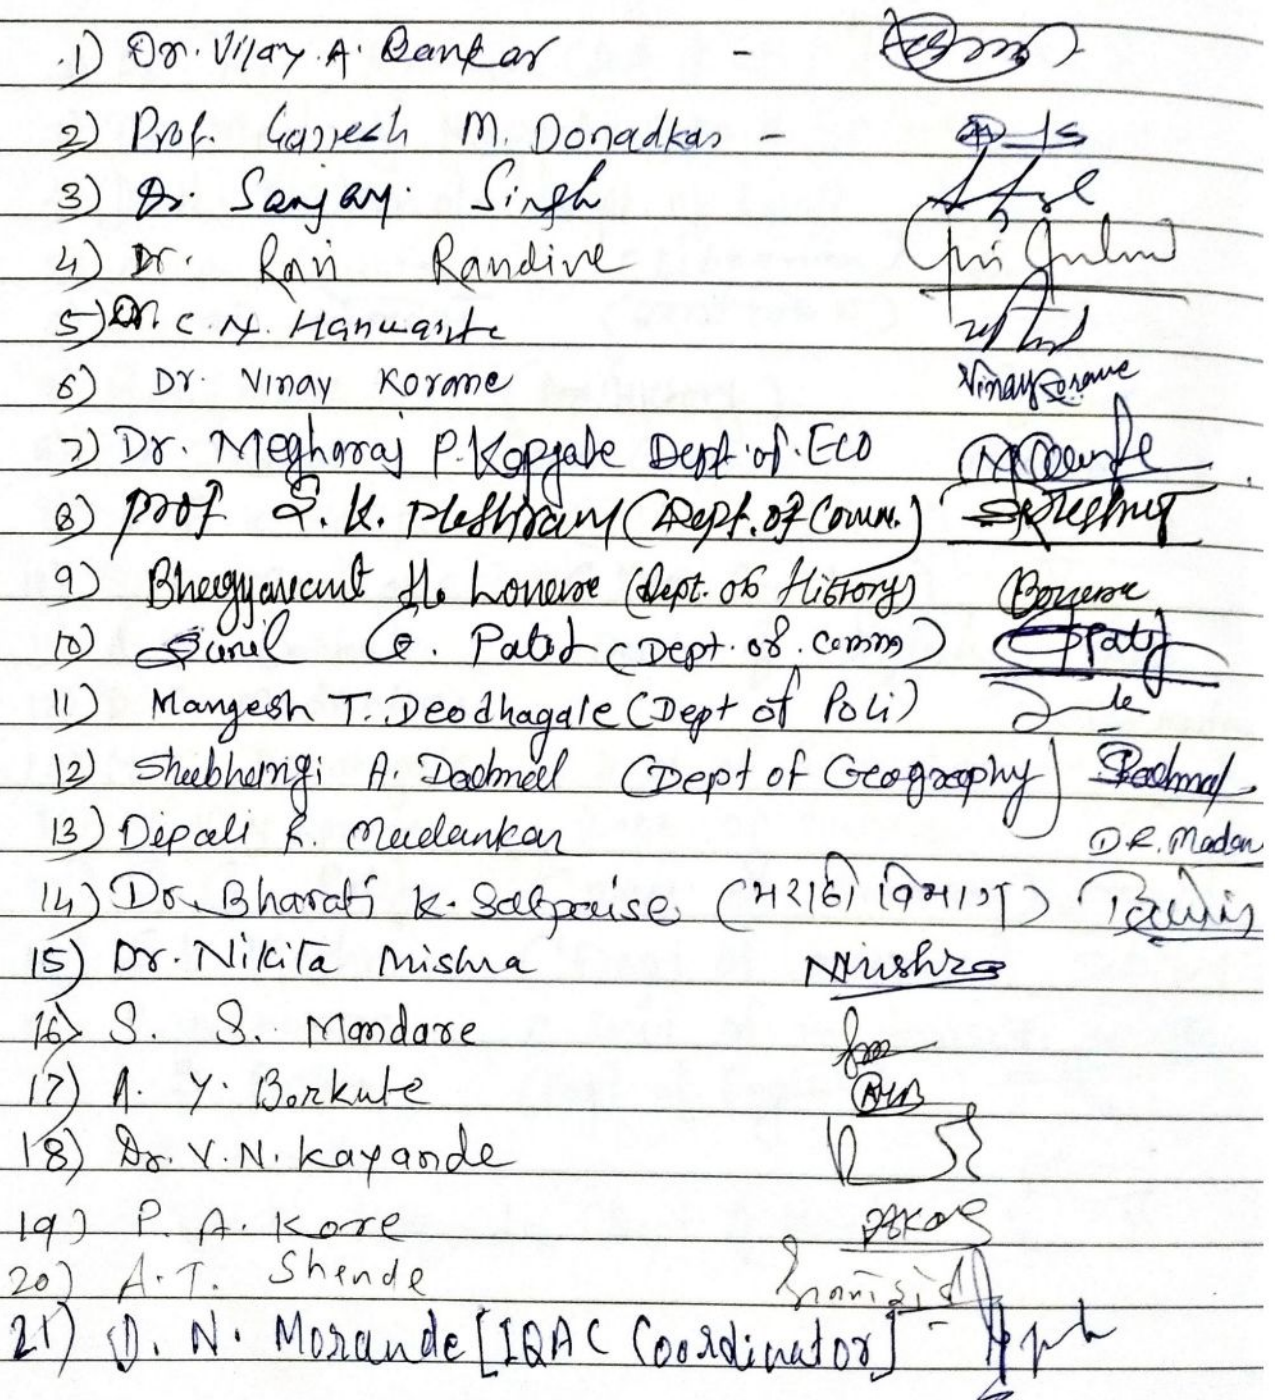 1) Dr. Vijay. A. Bankar -
2) Prof. Ganesh M. Donadkar -
3) Dr. Sanjay. Singh
4) Dr. Ravi Randive
5) Dr C. N. Hanwante
6) Dr. Vinay Korame Vinay Korame
7) Dr. Megharaj P. Kopgate Dept. of. ECO
8) prof S. K. Meshram (Dept. of Comm.)
9) Bhagyawant H. Lonare (Dept. of History)
10) Sunil G. Patil (Dept. of. comm) Patil
11) Mangesh T. Deodhagale (Dept of Poli)
12) Shubhangi A. Dadmal (Dept of Geography) Dadmal
13) Dipali R. Madankar D.R. Madan
14) Dr. Bharati K. Satpaise (मराठी विभाग)
15) Dr. Nikita Mishra NMishra
16) S. S. Mandare
17) A. Y. Borkute AYB
18) Dr. V. N. Kayande
19) P. A. Kore PAKore
20) A. T. Shende
21) D. N. Morande [IQAC Coordinator] -